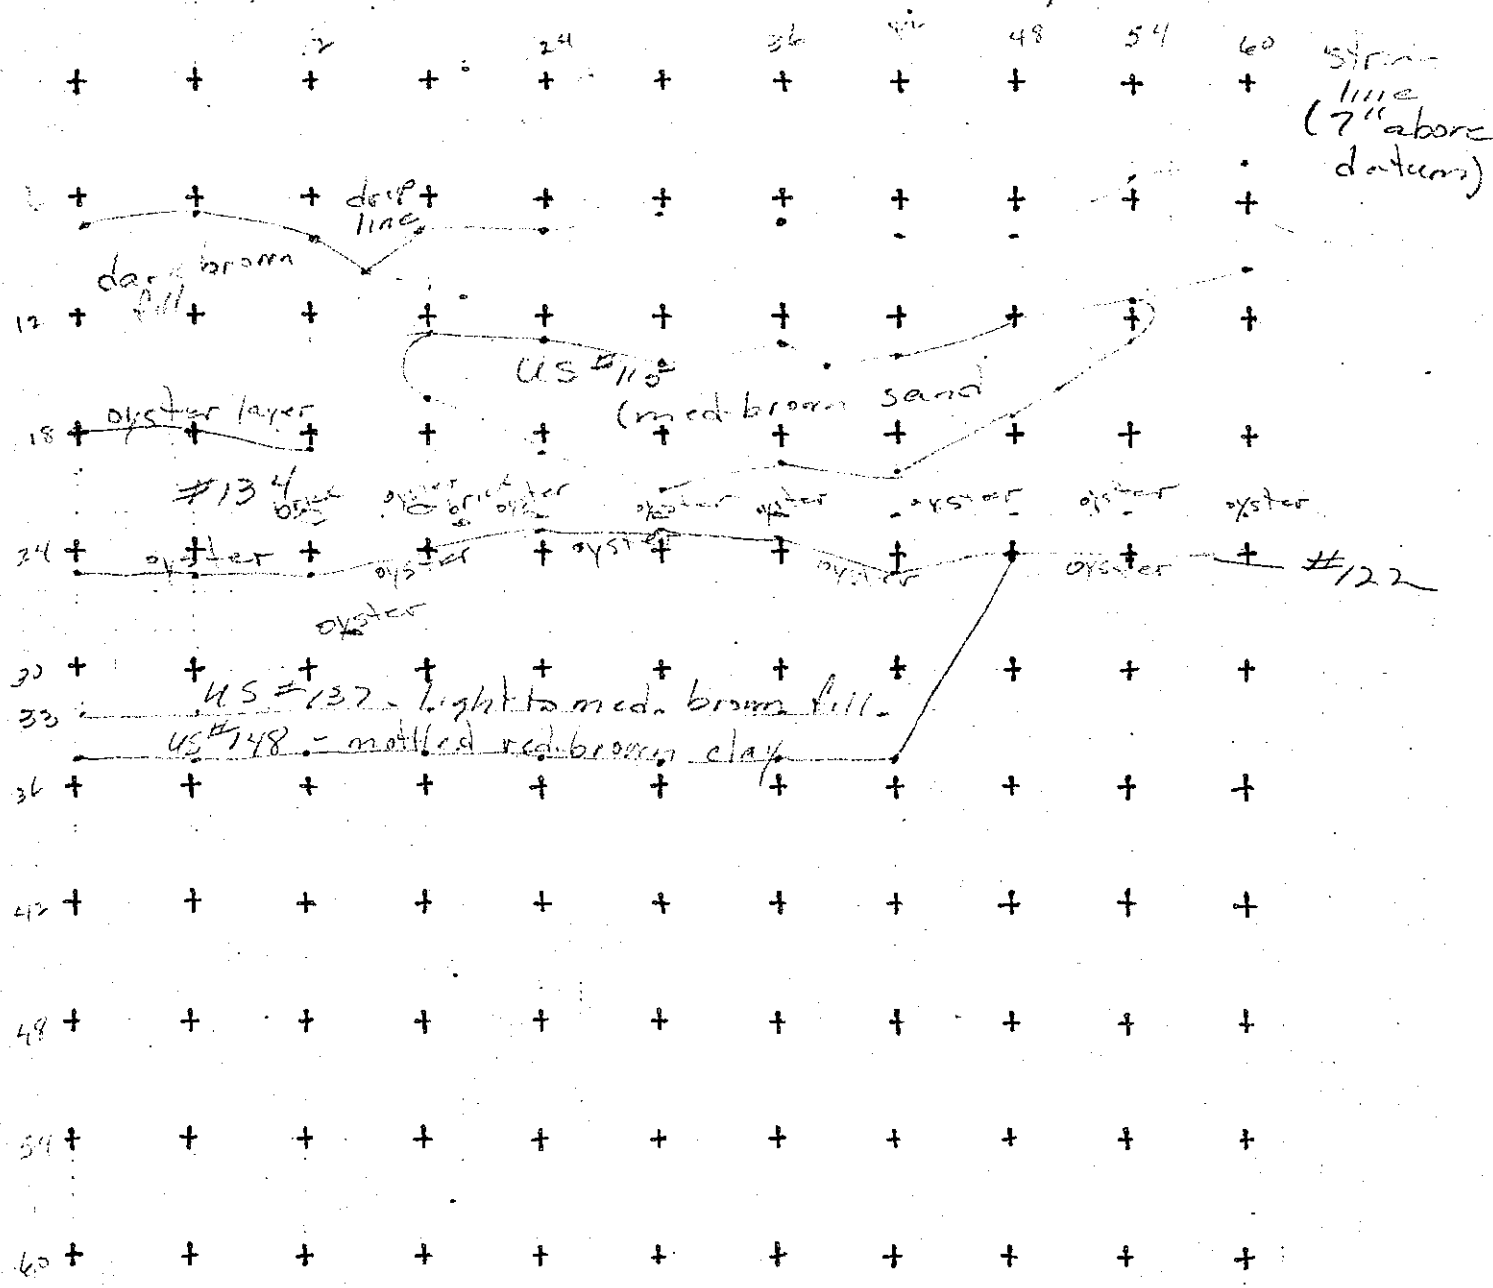 24 36 48 54 60
line
(7" above
datum)
drip
line
brown
fill
12
US #
(med-brown sand
oyster layer
18
#134
oyster brick oyster oyster oyster oyster oyster oyster
24 oyster oyster oyster oyster oyster #122
oyster
30
33 US #137 - light to med. brown fill
US #148 - mottled red-brown clay
36
42
48
54
60